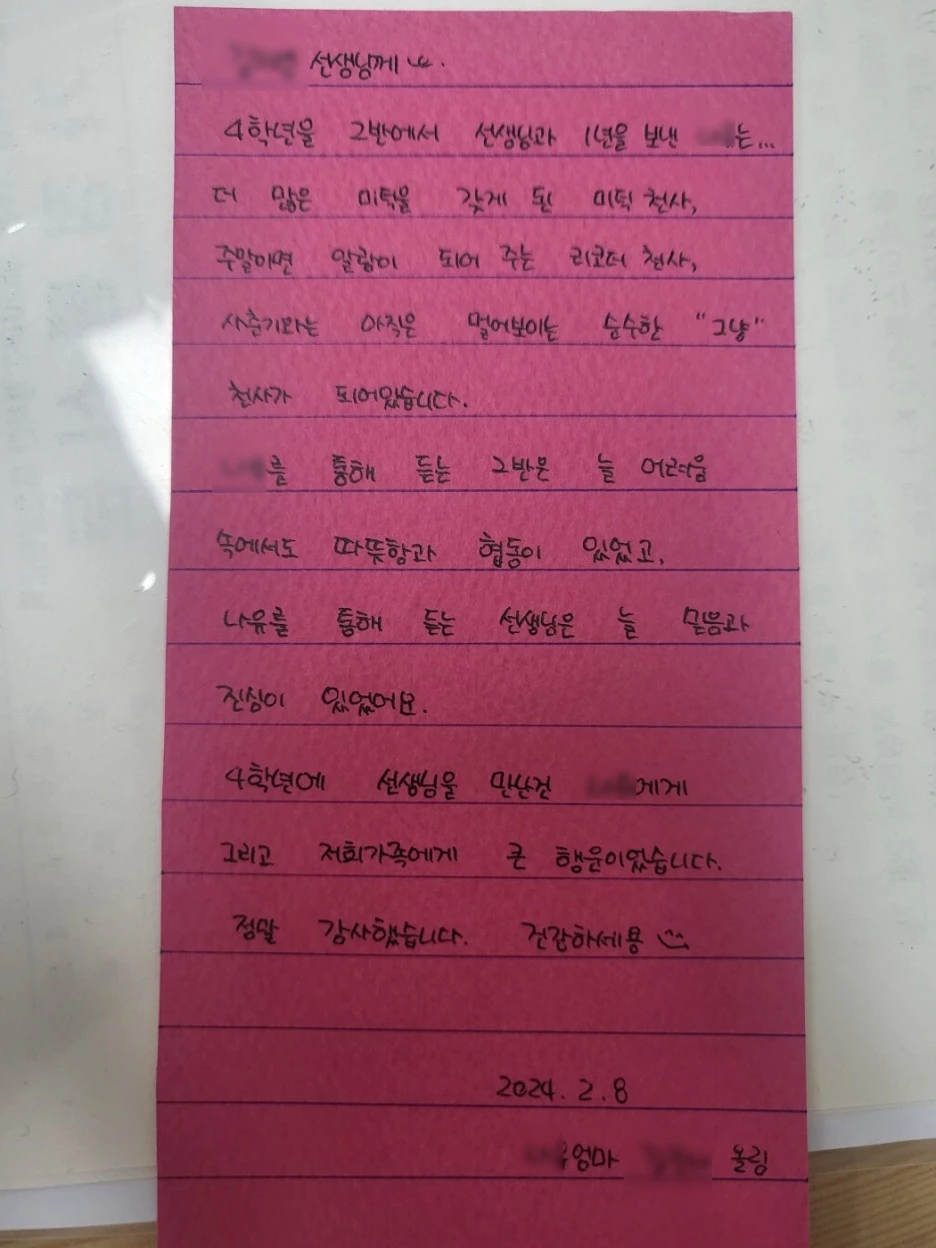 선생님께
4학년을 2반에서 선생님과 1년을 보낸 는...
더 많은 미덕을 갖게 된 미덕 천사,
주말이면 알람이 되어 주는 리코더 천사,
사춘기와는 아직은 멀어보이는 순수한 "그냥"
천사가 되어있습니다.
를 통해 듣는 2반은 늘 어려움
속에서도 따뜻함과 협동이 있었고,
나유를 통해 듣는 선생님은 늘 믿음과
진심이 있었어요.
4학년에 선생님을 만난건 에게
그리고 저희가족에게 큰 행운이었습니다.
정말 감사했습니다. 건강하세용
2024. 2. 8
엄마 올림